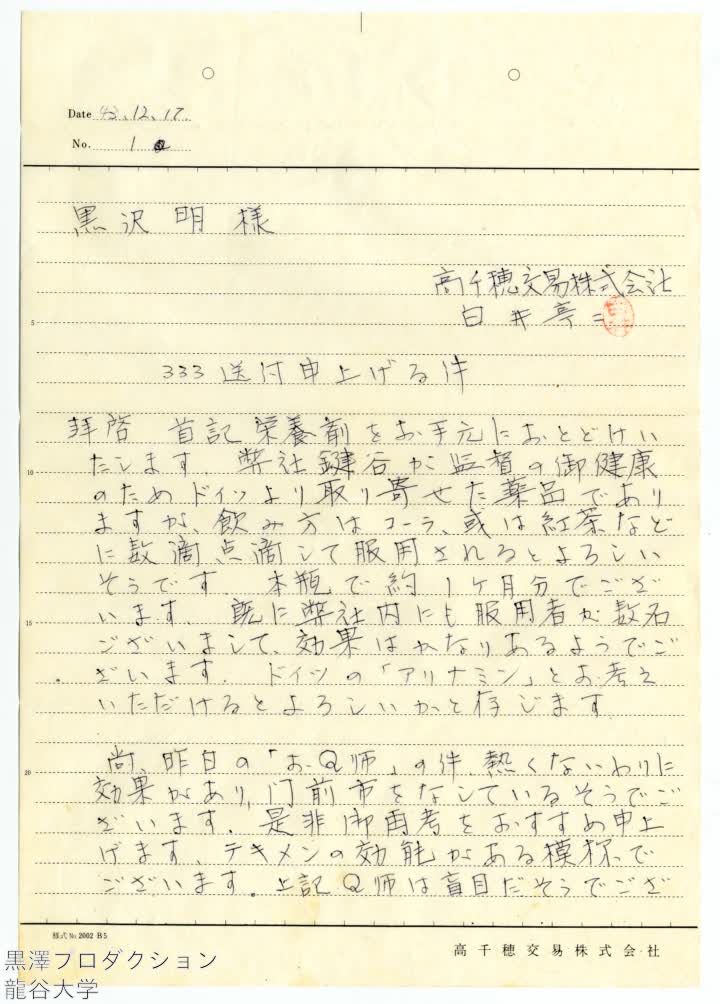 Date 43.12.17.
No. 1
黒沢明様
高千穂交易株式会社
白井亭二
333送付申上げる件
拝啓 首記栄養剤をお手元におとどけい
たします 弊社鍵谷が監督の御健康
のためドイツより取り寄せた薬品であり
ますが、飲み方はコーラ、或は紅茶など
に数滴点滴して服用されるとよろしい
そうです 本瓶で約1ケ月分でござ
います. 既に弊社内にも服用者が数名
ございまして、効果はかなりあるようでご
ざいます. ドイツの「アリナミン」とお考え
いただけるとよろしいかと存じます
尚、昨日の「お.Q師」の件、熱くないわりに
効果があり、門前市をなしているそうでご
ざいます. 是非御再考をおすすめ申上
げます、テキメンの効能がある模様で
ございます. 上記Q師は盲目だそうでござ
5
10
15
20
様式No.2002 B5
高千穂交易株式会社
黒澤プロダクション
龍谷大学